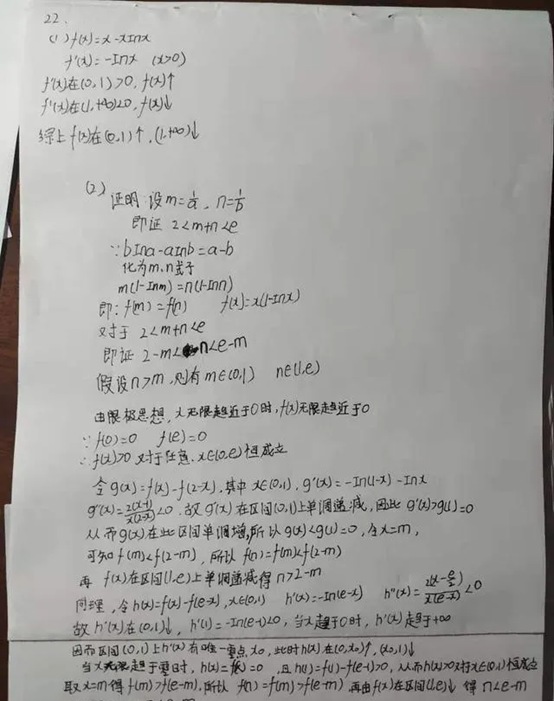 22.
(1) f(x)=x-xlnx
f'(x)=-lnx (x>0)
f'(x)在(0,1)>0, f(x)↑
f'(x)在(1,+∞)<0, f(x)↓
综上 f(x)在(0,1)↑, (1,+∞)↓
(2)
证明:设m=1/a, n=1/b
即证 2<m+n<e
∵blna-alnb=a-b
化为m、n式子
m(1-lnm)=n(1-lnn)
即: f(m)=f(n) f(x)=x(1-lnx)
对于 2<m+n<e
即证 2-m<n<e-m
假设n>m, 则有m∈(0,1) n∈(1,e)
由限极思想, x无限趋近于0时, f(x)无限趋近于0
∵f(0)=0 f(e)=0
∴f(x)>0 对于任意 x∈(0,e)恒成立
令g(x)=f(x)-f(2-x), 其中 x∈(0,1), g'(x)=-ln(1-x)-lnx
g''(x)=2(x-1)/x(2-x)<0. 故g'(x)在区间(0,1)上单调递减, 因此g'(x)>g(1)=0
从而g(x)在此区间单调增, 所以g(x)<g(1)=0, 令x=m,
可知f(m)<f(2-m), 所以 f(n)=f(m)<f(2-m)
再 f(x)在区间(1,e)上单调递减得n>2-m
同理, 令h(x)=f(x)-f(e-x), x∈(0,1) h'(x)=-ln(e-x) h''(x)=2(x-e/2)/x(e-x)<0
故 h'(x)在(0,1)↓, h'(1)=-ln(e-1)<0, 当x趋于0时, h'(x)趋于+∞
因而区间(0,1)上h'(x)有唯一零点x₀, 此时h(x)在(0,x₀)↑, (x₀,1)↓
当x趋于零时, h(x)=f(x)=0, 且h(1)=f(1)-f(e-1)>0, 从而h(x)>0对x∈(0,1)恒成立
取x=m得f(m)>f(e-m), 所以 f(n)=f(m)>f(e-m) 再由f(x)在区间(1,e)↓ 得 n<e-m